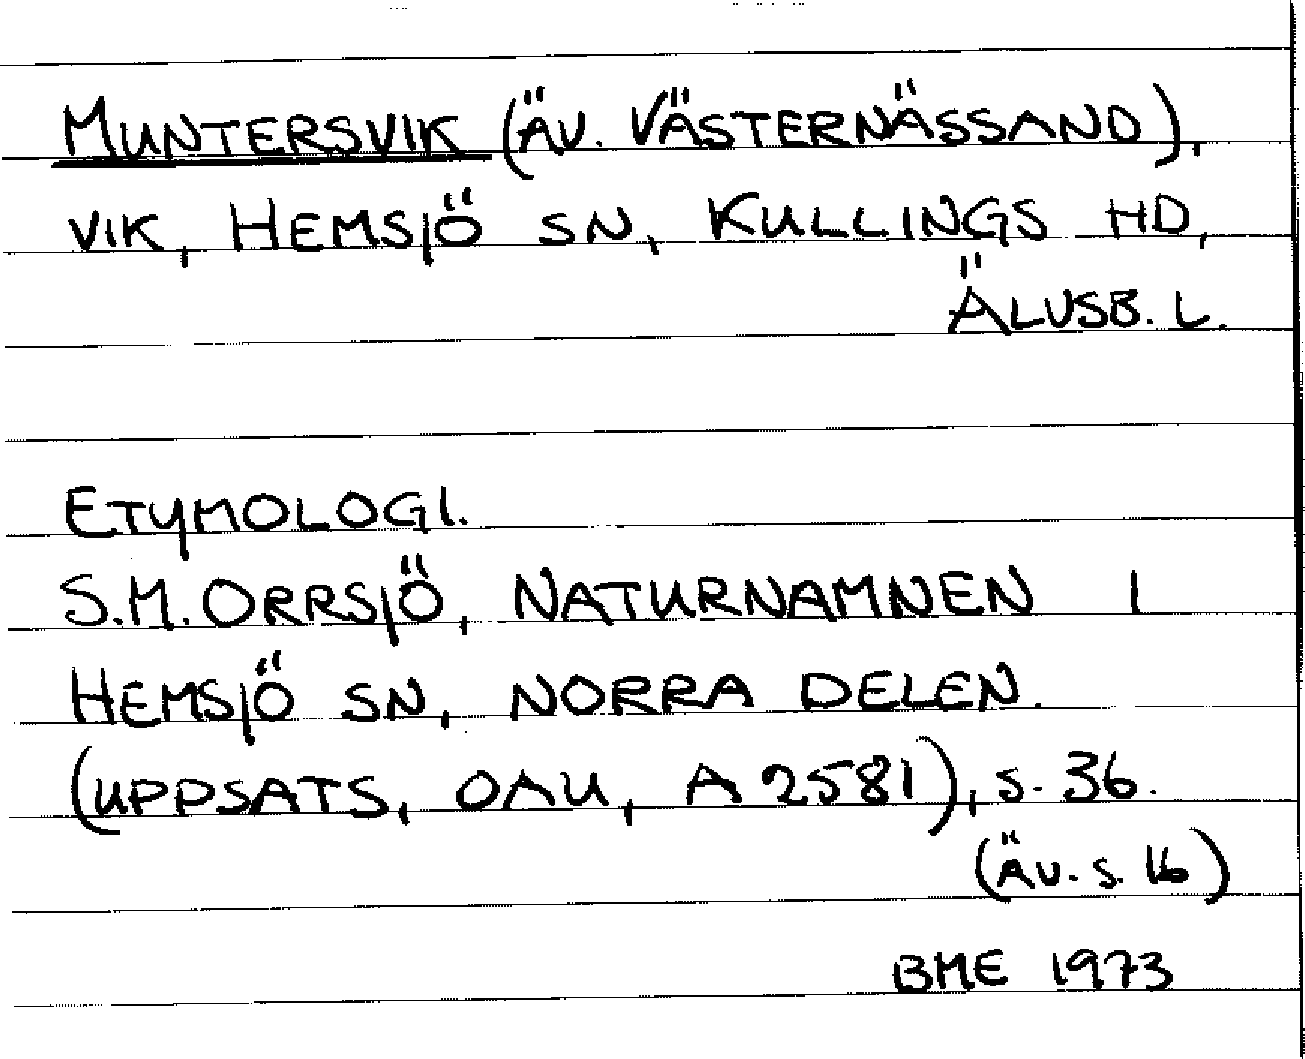 MUNTERSVIK (ÄV. VÄSTERNÄSSAND),
VIK, HEMSJÖ SN, KULLINGS HD,
ÄLVSB. L.
ETYMOLOGI.
S.M. ORRSJÖ, NATURNAMNEN I
HEMSJÖ SN, NORRA DELEN.
(UPPSATS, OAU, A 2581), S. 36.
(ÄV. S. 16)
BME 1973